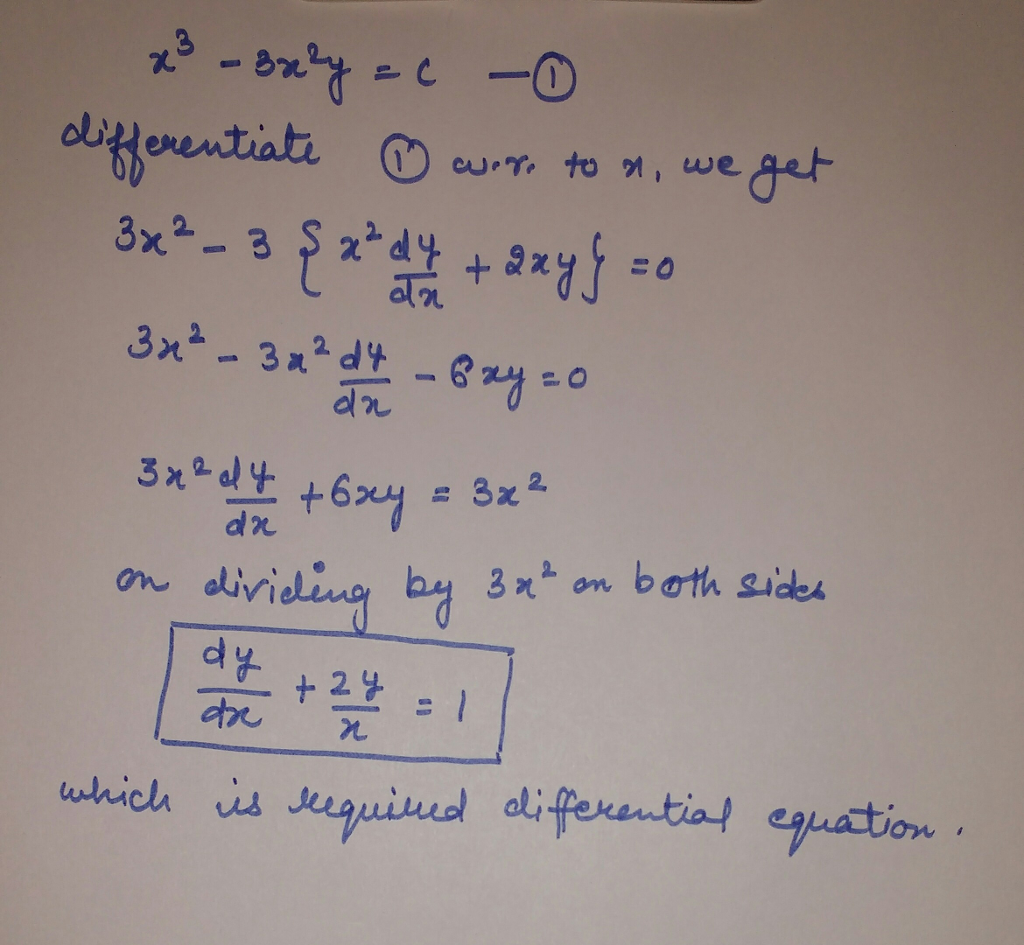 x³ - 3x²y = c — ①
differentiate ① w.r. to x, we get
3x² - 3 { x² dy/dx + 2xy } = 0
3x² - 3x² dy/dx - 6xy = 0
3x² dy/dx + 6xy = 3x²
on dividing by 3x² on both sides
dy/dx + 2y/x = 1
which is required differential equation.